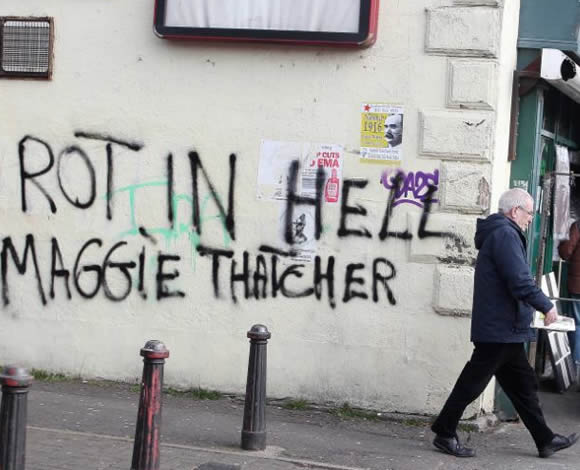 ROT IN HELL
MAGGIE THATCHER
1916
CUTS
EMA
DADS